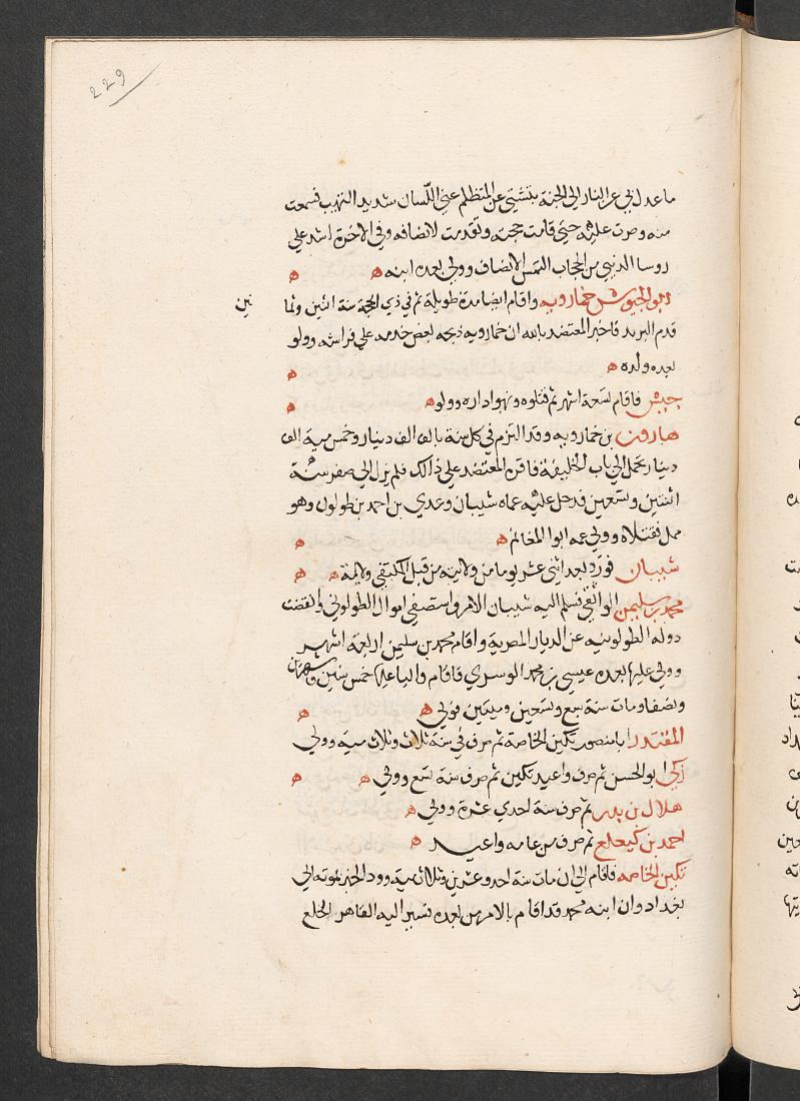 229
ما عدل بي عن النار الى الجنة فتشتى عن المتظلم عيى اللسان شديد التهيب فسمعت
منه وصرت عليه حتى قامت حجته وتقدمت لانصافه وفي الاخرة اشد على
روسا الدنيى من الحجاب التمس الانصاف وولي بعده ابنه ه ه
ابو الجيوش خمارويه واقام ايضا مدة طويلة ثم في ذي الحجة سنة اثنين وثما نين
قدم البريد فاخبر المعتضد بالله ان خمارويه ذبحه بعض خدمه على فراشه وولو
بعده ولده ه ه
جيش فاقام تسعة اشهر ثم قتلوه ونهبوا داره وولو ه ه
هارون بن خمارويه وقد التزم في كل سنة بالف الف دينار وخمس مية الف
دينار تحمل الى باب الخليفة فاقره المعتضد على ذالك فلم يزل الى صفر سنة
اثنتين وتسعين فدخل عليه عماه شيبان وعدي بن احمد بن طولون وهو
ثمل فقتلاه وولي عمه ابو المغانم ه ه
شيبان فورد بعد اثنى عشر يوما من ولايته من قبل المكتفي ولاية ه ه
محمد بن سليمن الواثقي فسلم اليه شيبان الامر واستصفى اموال الطولوني وانقضت
دولة الطولونيه عن الديار المصرية واقام محمد بن سليمن اربعة اشهر
وولي عليها بعده عيسى بن محمد النوسري فاقام واليا عليها خمس سنين وشهرين
ونصفا ومات سنة سبع وتسعين وميتين فولي ه ه
المقتدر ابا منصور تكين الخاصة ثم صرف في سنة ثلاث وثلاث مية وولي
زكي ابو الحسن ثم صرف واعيد تكين ثم صرف سنة تسع وولي ه ه
هلال بن بدر ثم صرف سنة احدي عشرة وولي ه
احمد بن كيغلغ ثم صرف من عامه واعيد ه
تكين الخاصه فاقام الى ان مات سنة احد وعشرين وثلاث مية وورد الخبر بموته الى
بغداد وان ابنه محمد قد اقام بالامر من بعده فسير اليه القاهر الخلع